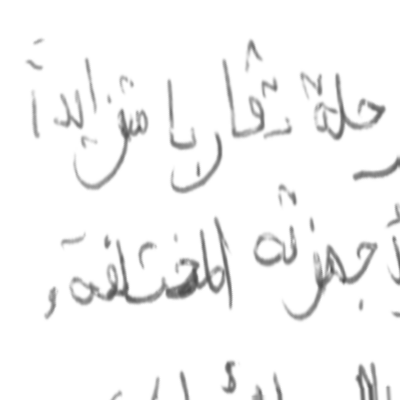 رحلة تقاربا متزايداً
أجهزته المختلفة و